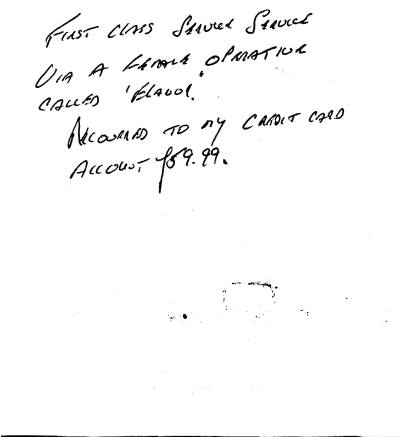 FIRST CLASS SERVICE SERVICE
VIA A FEMALE OPERATIVE
CALLED 'ELAOOL'.
RECOVERED TO MY CREDIT CARD
ACCOUNT £59.99.